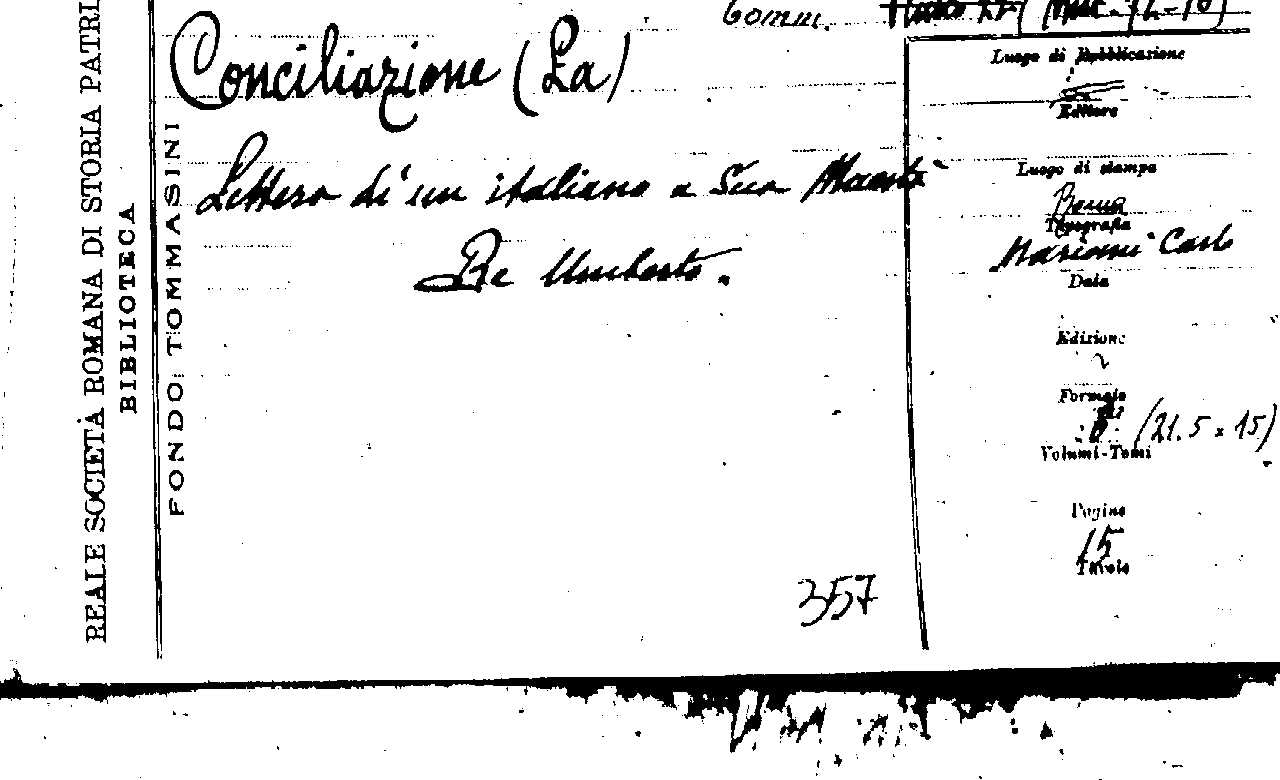 REALE SOCIETÀ ROMANA DI STORIA PATRI
BIBLIOTECA
FONDO: TOMMASINI
Comm.
Conciliazione (La)
Lettera di un italiano a Sua Maestà
Re Umberto.
357
Luogo di Pubblicazione
Editore
Luogo di stampa
Roma
Tipografia
Mariani Carlo
Data
Edizione
Formato
8 (21.5 x 15)
Volumi-Tomi
Pagine
15
Tavole